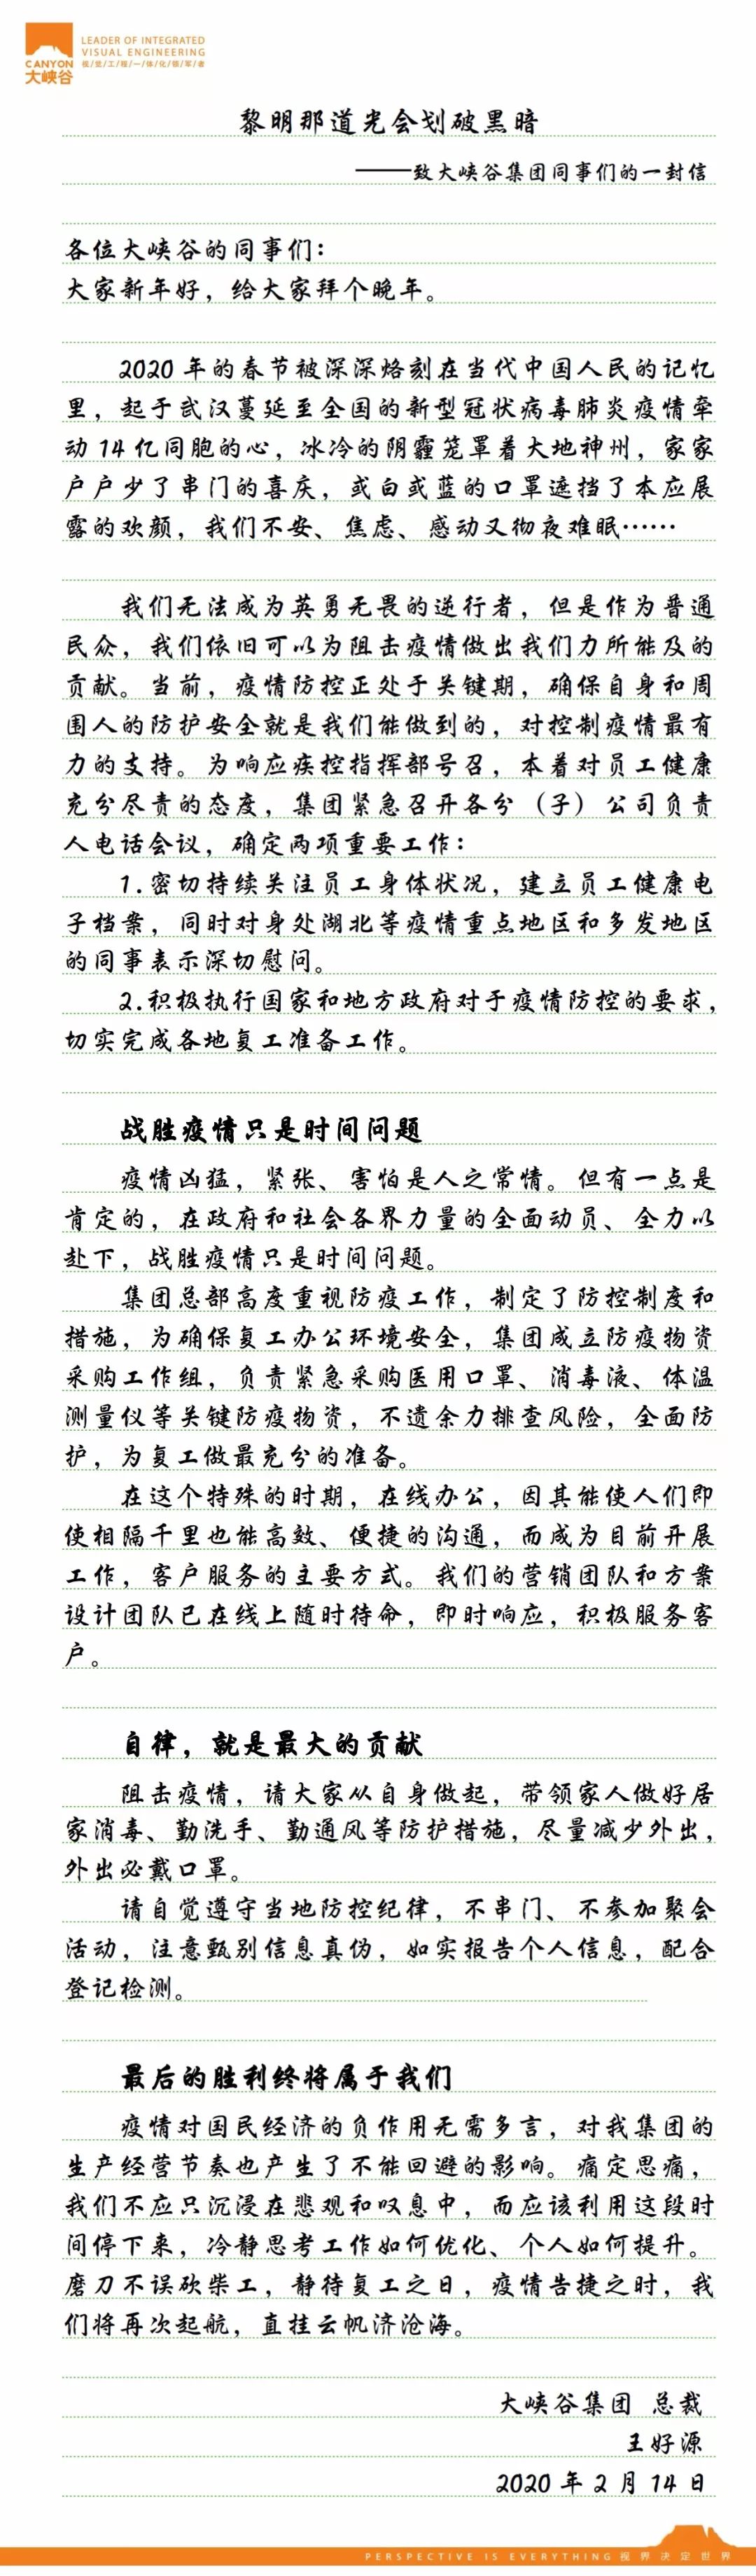 LEADER OF INTEGRATED
VISUAL ENGINEERING
视/觉/工/程/一/体/化/领/军/者
CANYON
大峡谷
黎明那道光会划破黑暗
——致大峡谷集团同事们的一封信
各位大峡谷的同事们：
大家新年好，给大家拜个晚年。
2020 年的春节被深深烙刻在当代中国人民的记忆
里，起于武汉蔓延至全国的新型冠状病毒肺炎疫情牵
动 14 亿同胞的心，冰冷的阴霾笼罩着大地神州，家家
户户少了串门的喜庆，或白或蓝的口罩遮挡了本应展
露的欢颜，我们不安、焦虑、感动又彻夜难眠……
我们无法成为英勇无畏的逆行者，但是作为普通
民众，我们依旧可以为阻击疫情做出我们力所能及的
贡献。当前，疫情防控正处于关键期，确保自身和周
围人的防护安全就是我们能做到的，对控制疫情最有
力的支持。为响应疾控指挥部号召，本着对员工健康
充分尽责的态度，集团紧急召开各分（子）公司负责
人电话会议，确定两项重要工作：
1.密切持续关注员工身体状况，建立员工健康电
子档案，同时对身处湖北等疫情重点地区和多发地区
的同事表示深切慰问。
2.积极执行国家和地方政府对于疫情防控的要求，
切实完成各地复工准备工作。
战胜疫情只是时间问题
疫情凶猛，紧张、害怕是人之常情。但有一点是
肯定的，在政府和社会各界力量的全面动员、全力以
赴下，战胜疫情只是时间问题。
集团总部高度重视防疫工作，制定了防控制度和
措施，为确保复工办公环境安全，集团成立防疫物资
采购工作组，负责紧急采购医用口罩、消毒液、体温
测量仪等关键防疫物资，不遗余力排查风险，全面防
护，为复工做最充分的准备。
在这个特殊的时期，在线办公，因其能使人们即
使相隔千里也能高效、便捷的沟通，而成为目前开展
工作，客户服务的主要方式。我们的营销团队和方案
设计团队已在线上随时待命，即时响应，积极服务客
户。
自律，就是最大的贡献
阻击疫情，请大家从自身做起，带领家人做好居
家消毒、勤洗手、勤通风等防护措施，尽量减少外出，
外出必戴口罩。
请自觉遵守当地防控纪律，不串门、不参加聚会
活动，注意甄别信息真伪，如实报告个人信息，配合
登记检测。
最后的胜利终将属于我们
疫情对国民经济的负作用无需多言，对我集团的
生产经营节奏也产生了不能回避的影响。痛定思痛，
我们不应只沉浸在悲观和叹息中，而应该利用这段时
间停下来，冷静思考工作如何优化、个人如何提升。
磨刀不误砍柴工，静待复工之日，疫情告捷之时，我
们将再次起航，直挂云帆济沧海。
大峡谷集团 总裁
王好源
2020 年 2 月 14 日
PERSPECTIVE IS EVERYTHING 视界决定世界